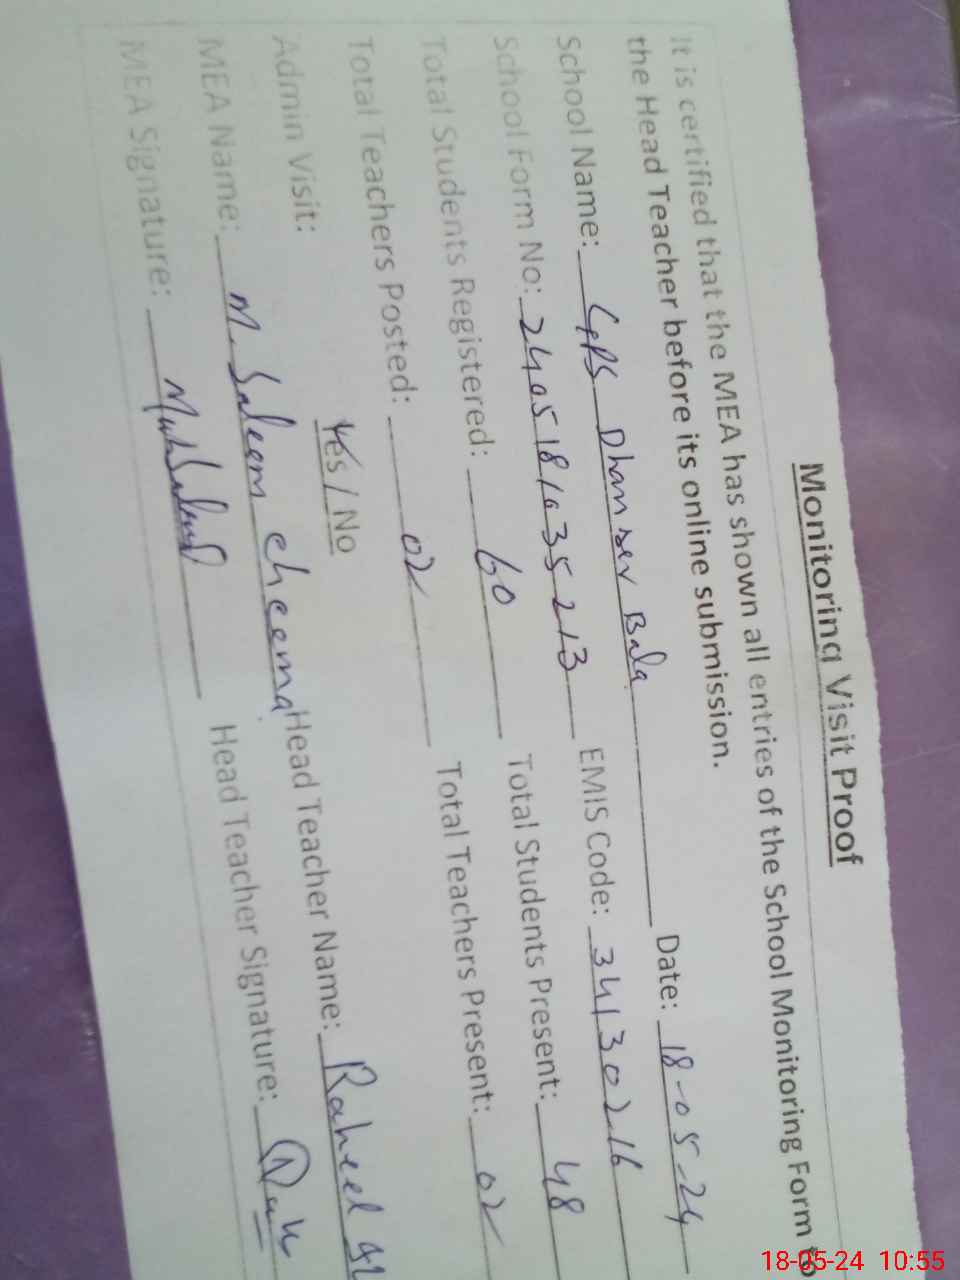 Monitoring Visit Proof
It is certified that the MEA has shown all entries of the School Monitoring Form to
the Head Teacher before its online submission.
School Name: GPS Dhanser Bala Date: 18-05-24
School Form No: 2405181635213 EMIS Code: 34130216
Total Students Registered: 60 Total Students Present: 48
Total Teachers Posted: 02 Total Teachers Present: 02
Admin Visit: Yes / No
MEA Name: M. Saleem cheema Head Teacher Name: Raheel
MEA Signature: Head Teacher Signature:
18-05-24 10:55